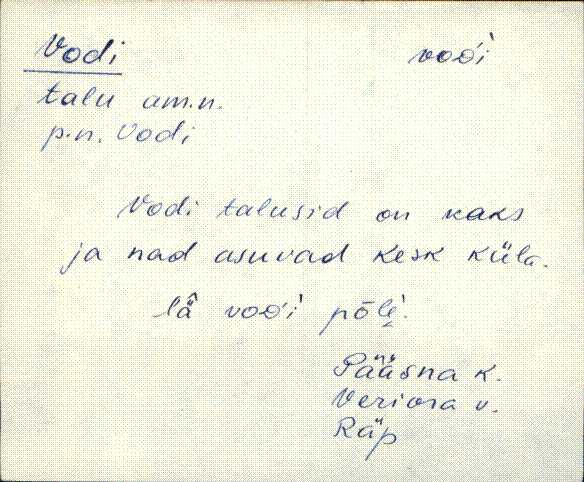 Vodi voďi
talu am.n.
p.n. Vodi
Vodi talusid on kaks
ja nad asuvad kesk küla.
lä̂ voďi põlè.
Pääsna k.
Veriora v.
Räp